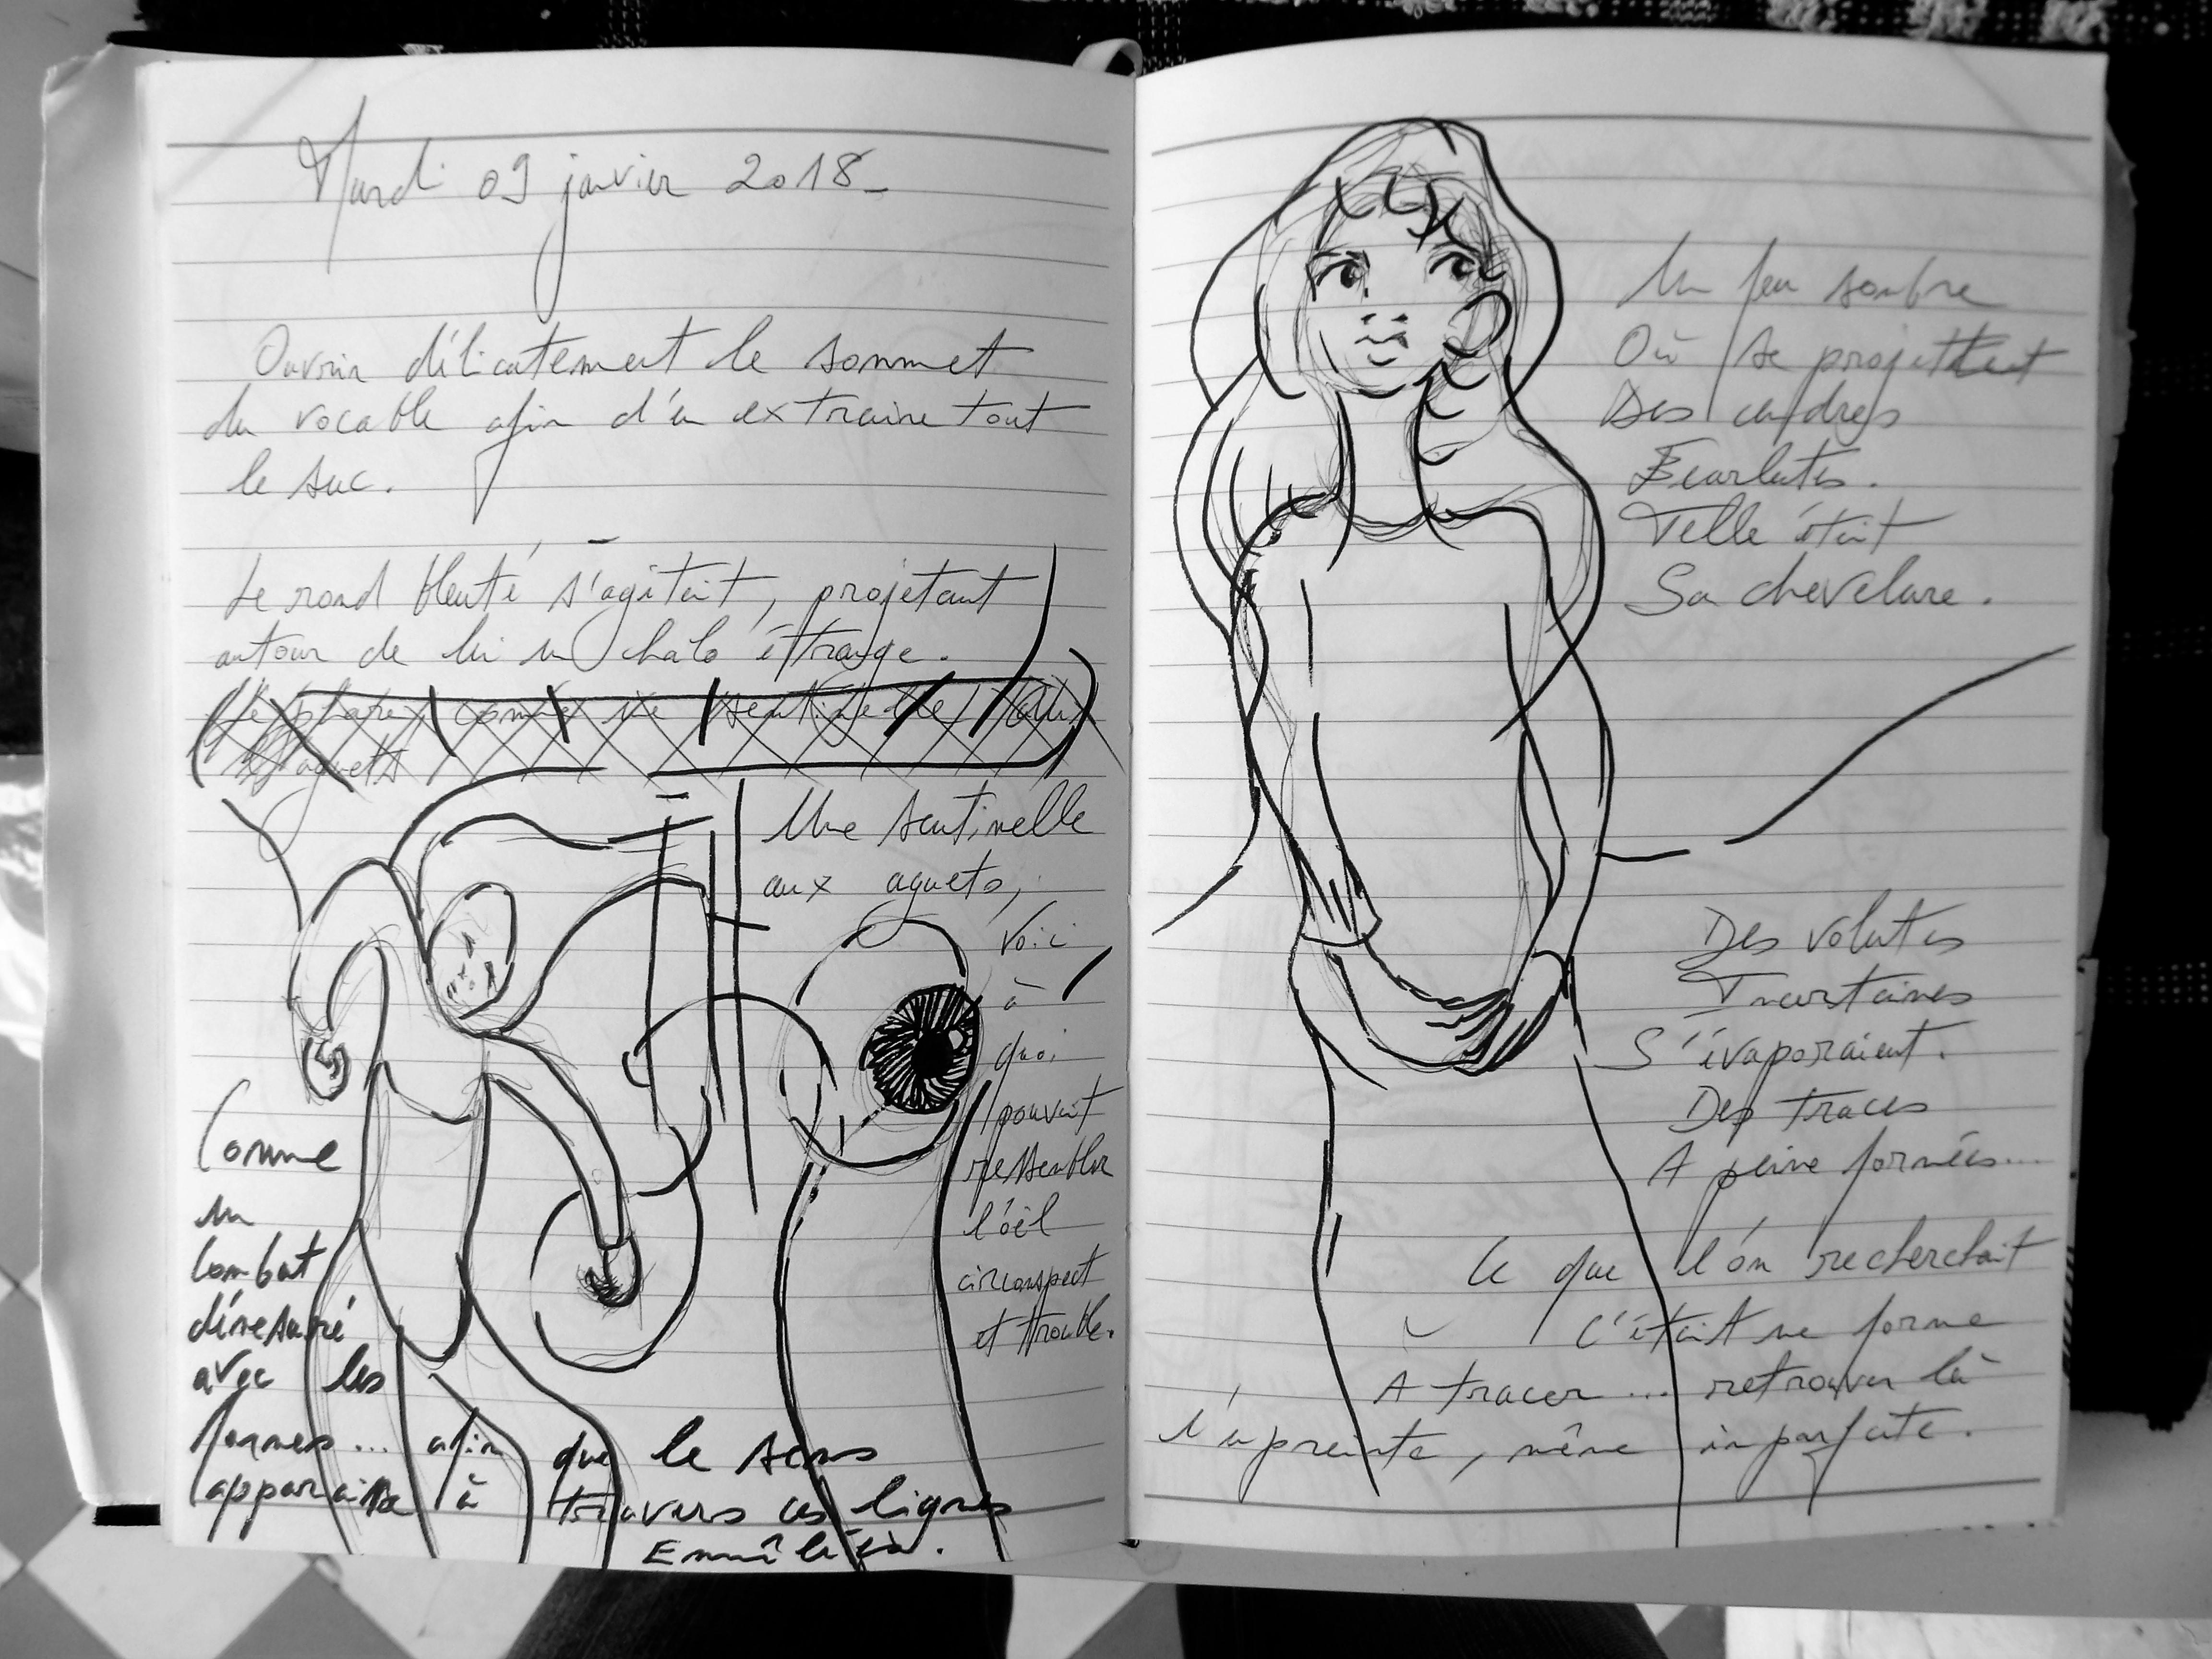 Mardi 09 janvier 2018_
Ouvrir délicatement le sommet
du vocable afin d'en extraire tout
le suc.
Le rond bleuté s'agitait, projetant
autour de lui un halo étrange.
Le phare, comme une sentinelle aux
aguets
Une sentinelle
aux aguets,
Voici
à
quoi
pouvait
ressembler
l'œil
circonspect
et trouble.
Comme
un
combat
démesuré
avec les
formes... afin que le sens
apparaisse à travers ces lignes
Emmêlées.
Un feu sombre
Où se projettent
Des cendres
Ecarlates.
Telle était
Sa chevelure.
Des volutes
Incertaines
S'évaporaient.
Des traces
A peine formées...
Ce que l'on recherchait
C'était une forme
A tracer... retrouver là
l'empreinte, même imparfaite.